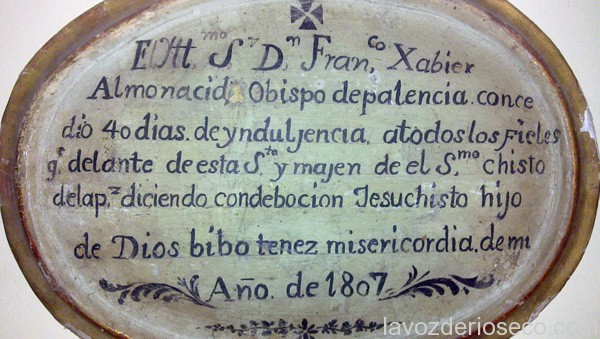 El Ill.mo S.r D.n Fran.co Xabier
Almonacid Obispo de palencia. conce
dio 40 dias. de ynduljencia, a todos los Fieles
q.e delante de esta S.ta y majen de el S.mo chisto
de la p.z diciendo con debocion Jesuchisto hijo
de Dios bibo tenez misericordia, de mi
Año. de 1807
lavozderioseco.com